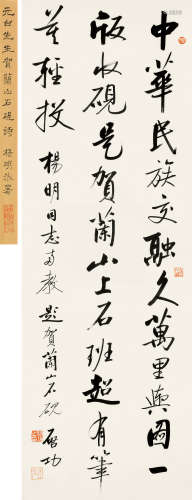 中華民族交融久萬里輿圖一
版收硯是賀蘭山上石班超有筆
莫輕投 楊明同志兩教 題賀蘭山石硯 啟功
元白先生賀蘭山石硯詩